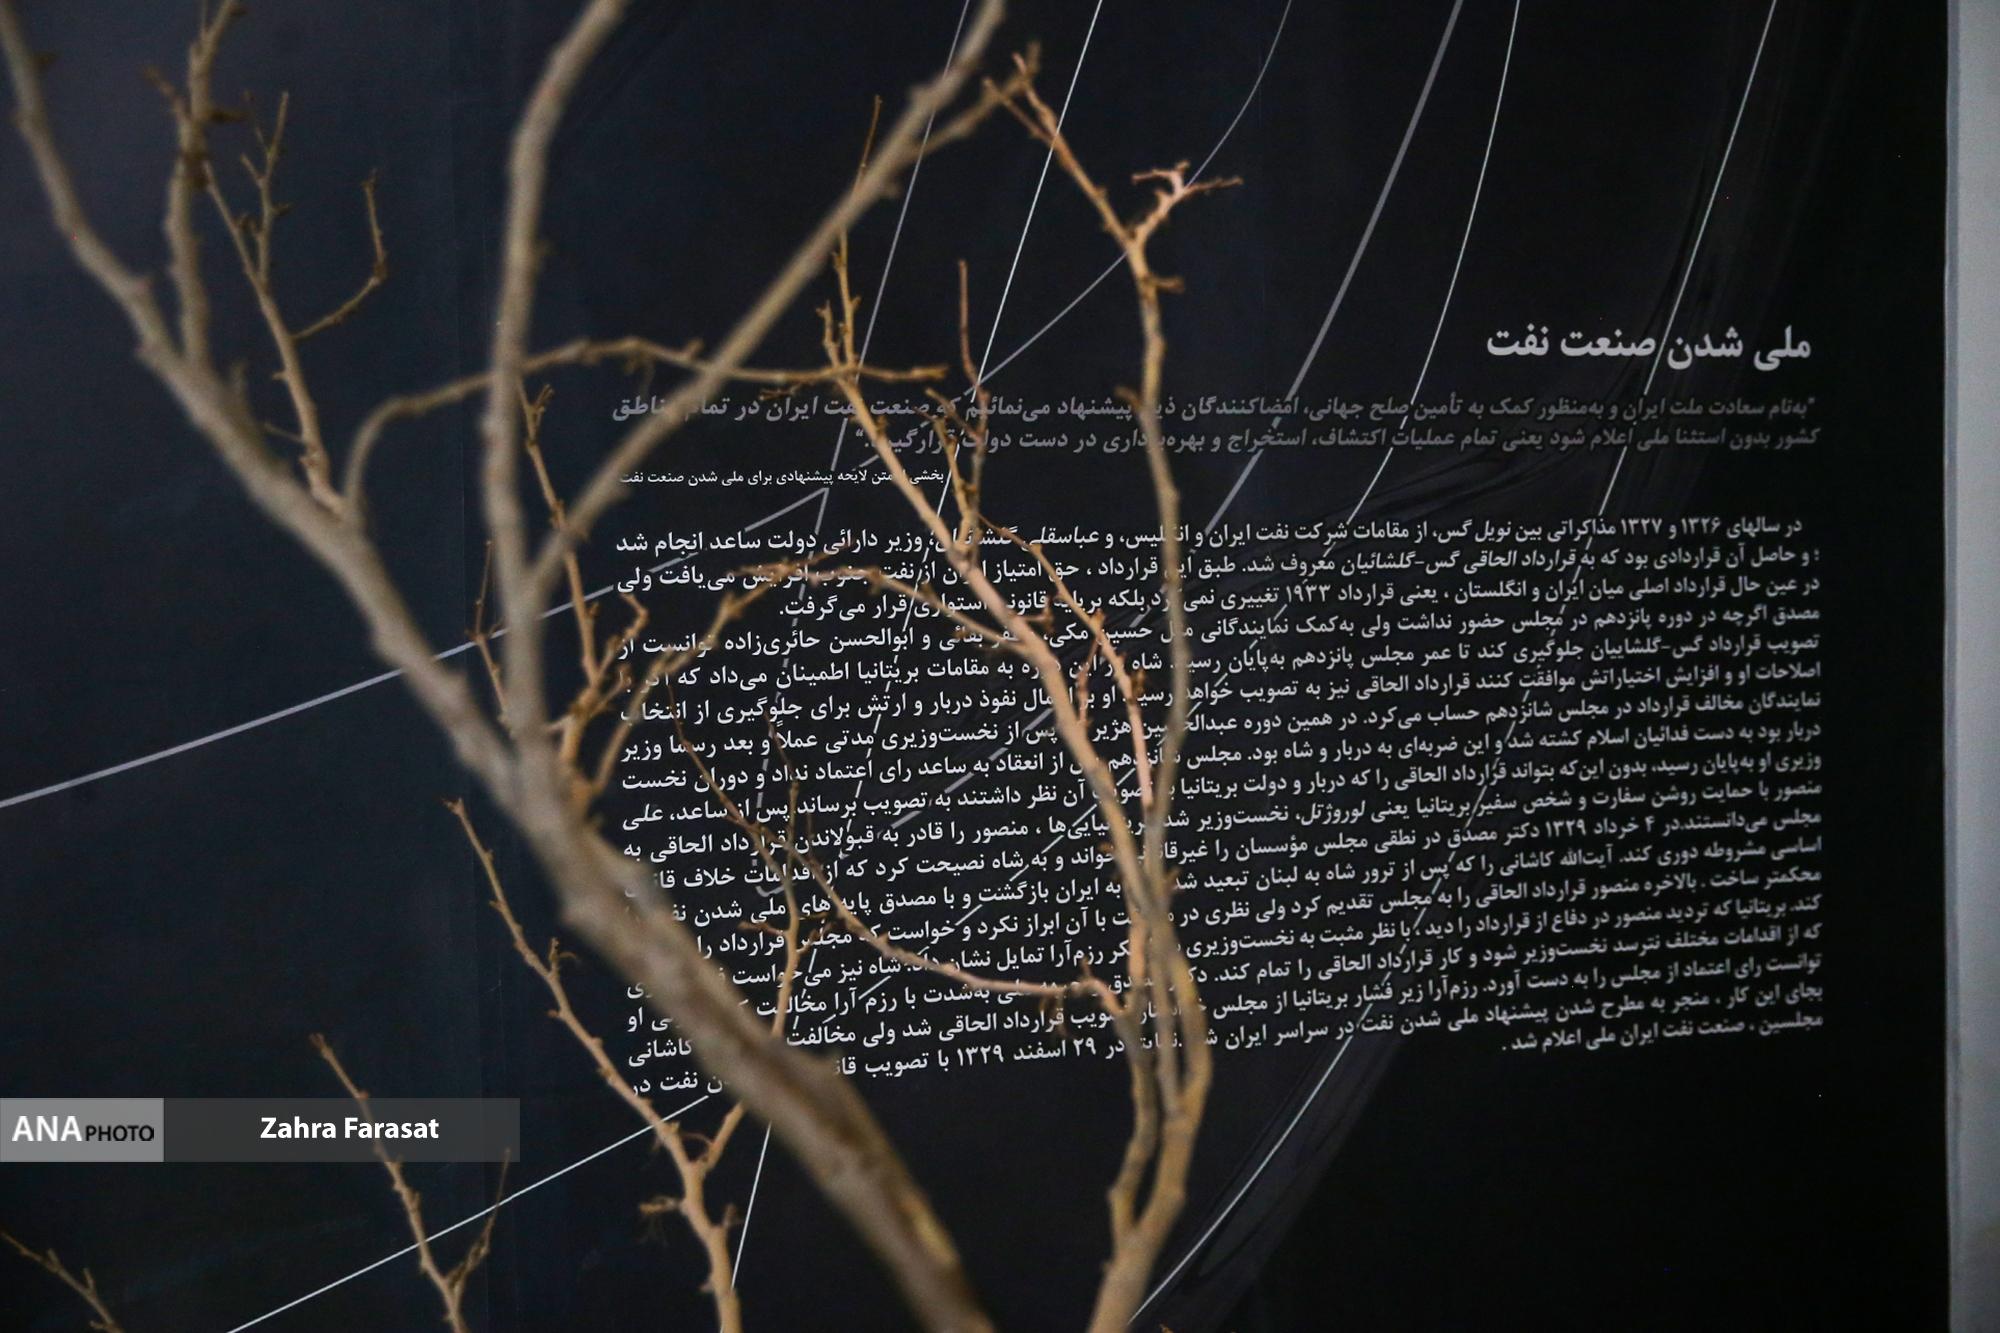 ملی شدن صنعت نفت
"به‌نام سعادت ملت ایران و به‌منظور کمک به تأمین صلح جهانی، امضاکنندگان ذیل پیشنهاد می‌نمائیم که صنعت نفت ایران در تمام مناطق
کشور بدون استثنا ملی اعلام شود یعنی تمام عملیات اکتشاف، استخراج و بهره‌برداری در دست دولت قرارگیرد."
بخشی از متن لایحه پیشنهادی برای ملی شدن صنعت نفت
در سالهای ۱۳۲۶ و ۱۳۲۷ مذاکراتی بین نویل گس، از مقامات شرکت نفت ایران و انگلیس، و عباسقلی گلشائیان، وزیر دارائی دولت ساعد انجام شد
؛ و حاصل آن قراردادی بود که به قرارداد الحاقی گس-گلشائیان معروف شد. طبق این قرارداد ، حق امتیاز ایران از نفت جنوب افزایش می‌یافت ولی
در عین حال قرارداد اصلی میان ایران و انگلستان ، یعنی قرارداد ۱۹۳۳ تغییری نمی‌کرد بلکه بر پایه قانونی استواری قرار می‌گرفت.
مصدق اگرچه در دوره پانزدهم در مجلس حضور نداشت ولی به‌کمک نمایندگانی مثل حسین مکی، مظفر بقائی و ابوالحسن حائری‌زاده توانست از
تصویب قرارداد گس-گلشاییان جلوگیری کند تا عمر مجلس پانزدهم به‌پایان رسید. شاه در این دوره به مقامات بریتانیا اطمینان می‌داد که اگر با
اصلاحات او و افزایش اختیاراتش موافقت کنند قرارداد الحاقی نیز به تصویب خواهد رسید. او بر اعمال نفوذ دربار و ارتش برای جلوگیری از انتخاب
نمایندگان مخالف قرارداد در مجلس شانزدهم حساب می‌کرد. در همین دوره عبدالحسین هژیر که پس از نخست‌وزیری مدتی عملاً و بعد رسما وزیر
دربار بود به دست فدائیان اسلام کشته شد و این ضربه‌ای به دربار و شاه بود. مجلس شانزدهم پس از انعقاد به ساعد رای اعتماد نداد و دوران نخست
وزیری او به‌پایان رسید، بدون این‌که بتواند قرارداد الحاقی را که دربار و دولت بریتانیا به تصویب آن نظر داشتند به تصویب برساند. پس از ساعد، علی
منصور با حمایت روشن سفارت و شخص سفیر بریتانیا یعنی لوروژتل، نخست‌وزیر شد. بریتانیایی‌ها ، منصور را قادر به قبولاندن قرارداد الحاقی به
مجلس می‌دانستند.در ۴ خرداد ۱۳۲۹ دکتر مصدق در نطقی مجلس مؤسسان را غیرقانونی خواند و به شاه نصیحت کرد که از اقدامات خلاف قانون
اساسی مشروطه دوری کند. آیت‌الله کاشانی را که پس از ترور شاه به لبنان تبعید شده به ایران بازگشت و با مصدق پایه های ملی شدن نفت را
محکمتر ساخت . بالاخره منصور قرارداد الحاقی را به مجلس تقدیم کرد ولی نظری در موافقت با آن ابراز نکرد و خواست که مجلس قرارداد را
کند. بریتانیا که تردید منصور در دفاع از قرارداد را دید ، با نظر مثبت به نخست‌وزیری رزم‌آرا تمایل نشان داد. شاه نیز می‌خواست
که از اقدامات مختلف نترسد نخست‌وزیر شود و کار قرارداد الحاقی را تمام کند. دکتر مصدق و جبهه ملی به‌شدت با رزم آرا مخالفت او
توانست رای اعتماد از مجلس را به دست آورد. رزم‌آرا زیر فشار بریتانیا از مجلس خواستار تصویب قرارداد الحاقی شد ولی مخالفت کاشانی
بجای این کار ، منجر به مطرح شدن پیشنهاد ملی شدن نفت در سراسر ایران در ۲۹ اسفند ۱۳۲۹ با تصویب نفت در
مجلسین ، صنعت نفت ایران ملی اعلام شد .
ANA PHOTO Zahra Farasat